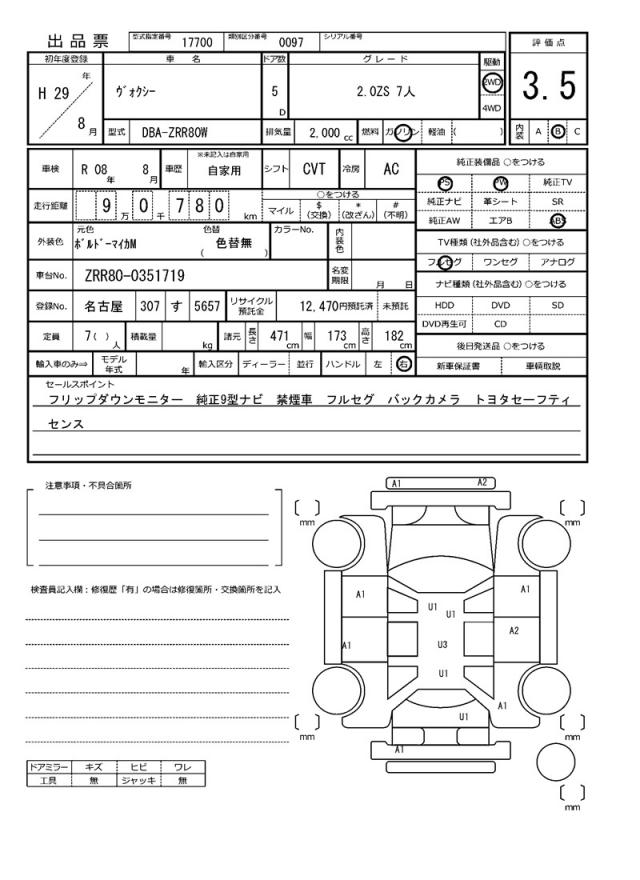 出品票 型式指定番号 17700 類別区分番号 0097 シリアル番号
評価点
初年度登録 車名 ドア数 グレード 駆動
H 29 年 8 月 ヴォクシー 5 D 2.0ZS 7人 2WD 4WD
3.5
型式 DBA-ZRR80W 排気量 2,000 cc 燃料 ガソリン 軽油 ( )
内装 A B C
車検 R 08 年 8 月 車歴 ※未記入は自家用 自家用 シフト CVT 冷房 AC
純正装備品 ○をつける
PS PW 純正TV
走行距離 9 万 0 千 7 8 0 km ○をつける
マイル $(交換) *(改ざん) #(不明)
純正ナビ 革シート SR
純正AW エアB ABS
外装色 元色 ボルドーマイカM 色替 色替無 ( ) カラーNo. 内装色
TV種類 (社外品含む) ○をつける
フルセグ ワンセグ アナログ
車台No. ZRR80-0351719 名変期限 月 日
ナビ種類 (社外品含む) ○をつける
登録No. 名古屋 307 す 5657 リサイクル預託金 12,470円預託済 未預託
HDD DVD SD
DVD再生可 CD
定員 7( ) 人 積載量 kg 諸元 長さ 471 cm 幅 173 cm 高さ 182 cm
後日発送品 ○をつける
輸入車のみ⇒ モデル年式 年 輸入区分 ディーラー 並行 ハンドル 左 右
新車保証書 車輌取説
セールスポイント
フリップダウンモニター 純正9型ナビ 禁煙車 フルセグ バックカメラ トヨタセーフティ
センス
注意事項・不具合箇所
A1 A2
mm mm
検査員記入欄:修復歴「有」の場合は修復箇所・交換箇所を記入
A1 A1
U1 U1
A2
A1 U3
U1
A1
U1
mm mm
A1
ドアミラー キズ ヒビ ワレ
工具 無 ジャッキ 無
mm